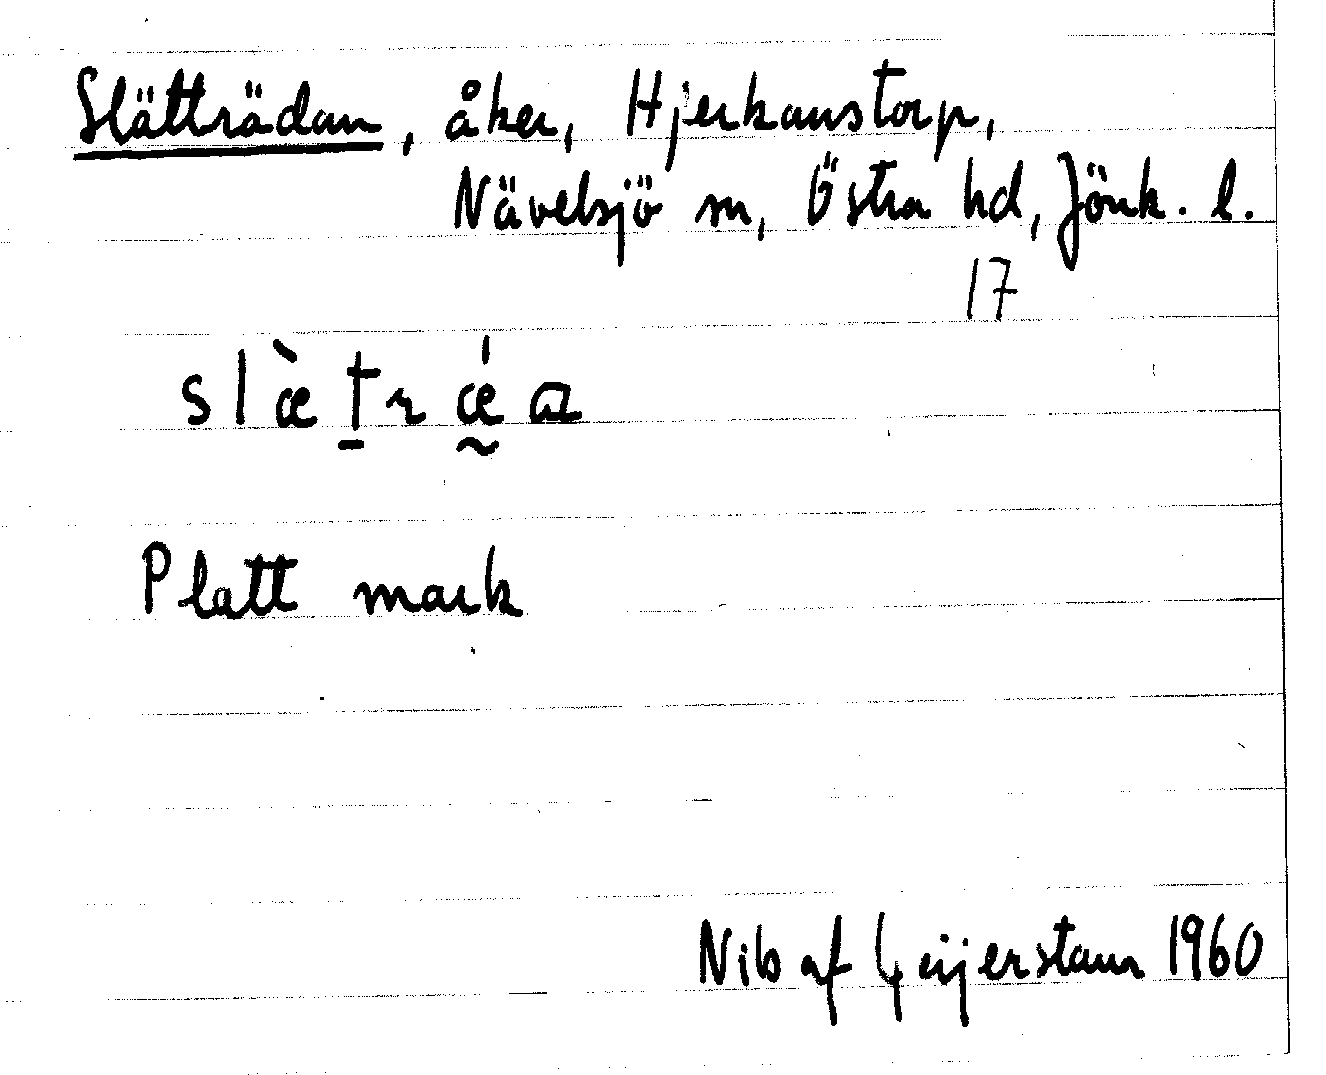 Slätträdan, åker, Hjerkanstorp,
Nävelsjö sn, Östra hd, Jönk. l.
17
slæ̀t̠rǽ̰a
Platt mark
Nils af Geijerstam 1960